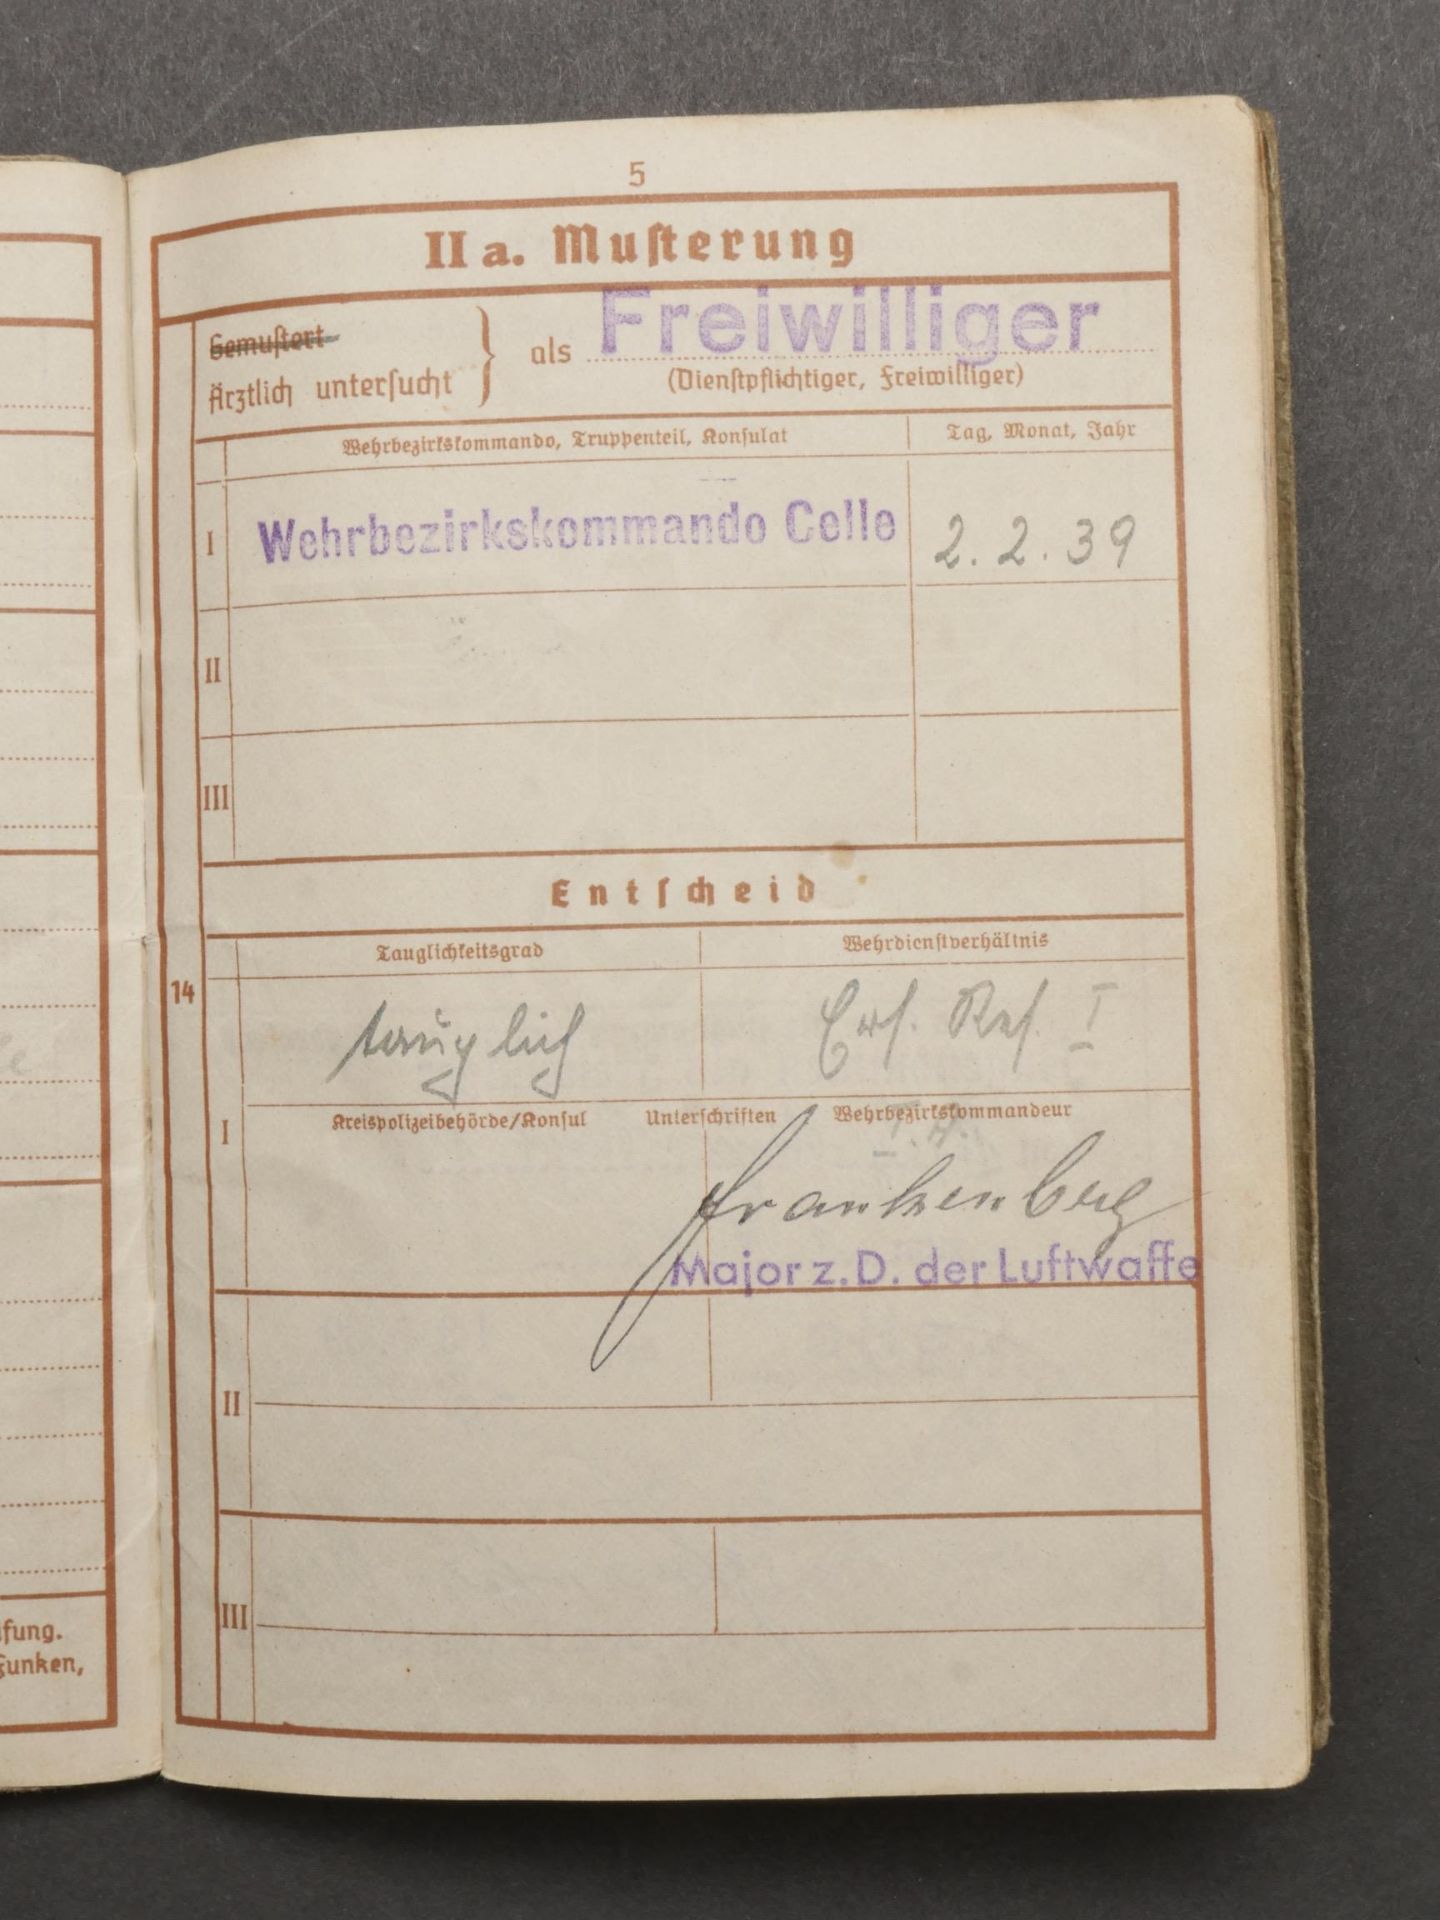 5
II a. Muſterung
Gemuſtert
Ärztlich unterſucht
als Freiwilliger
(Dienſtpflichtiger, Freiwilliger)
Wehrbezirkskommando, Truppenteil, Konſulat Tag, Monat, Jahr
I Wehrbezirkskommando Celle 2.2.39
II
III
Entſcheid
Tauglichkeitsgrad Wehrdienſtverhältnis
14
tauglich Erſ. Reſ. I
I
Kreispolizeibehörde/Konſul Unterſchriften Wehrbezirkskommandeur
Frankenberg
Major z.D. der Luftwaffe
II
III
fung.
Funken,